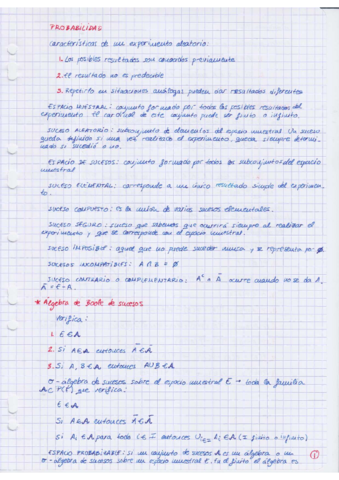 PROBABILIDAD
Características de un experimento aleatorio:
1. Los posibles resultados son conocidos previamente
2. El resultado no es predecible
3. Repetirlo en situaciones análogas pueden dar resultados diferentes
ESPACIO MUESTRAL: conjunto formado por todos los posibles resultados del
experimento. El cardinal de este conjunto puede ser finito o infinito.
SUCESO ALEATORIO: subconjunto de elementos del espacio muestral. Un suceso
queda definido si una vez realizado el experimento, queda, siempre determi-
nado si sucedió o no.
ESPACIO DE SUCESOS: conjunto formado por todos los subconjuntos del espacio
muestral
SUCESO ELEMENTAL: corresponde a un único resultado simple del experimen-
to.
SUCESO COMPUESTO: es la unión de varios sucesos elementales.
SUCESO SEGURO: suceso que sabemos que ocurrirá siempre al realizar el
experimento y que se corresponde con el espacio muestral.
SUCESO IMPOSIBLE: aquel que no puede suceder nunca, y se representa por Ø.
SUCESOS INCOMPATIBLES: A ∩ B = Ø
SUCESO CONTRARIO O COMPLEMENTARIO: Aᶜ = Ā ocurre cuando no se da A,
Ā = E - A.
* Álgebra de Boole de sucesos
Verifica:
1. E ∈ A
2. Si A ∈ A entonces Ā ∈ A
3. Si A, B ∈ A entonces A∪B ∈ A
σ-álgebra de sucesos sobre el espacio muestral E → toda la familia
A ⊂ P(E) que verifica:
E ∈ A
Si A ∈ A entonces Ā ∈ A
Si Ai ∈ A para todo i ∈ I entonces ∪i∈I Ai ∈ A (I finito o infinito)
ESPACIO PROBABILIZABLE: si un conjunto de sucesos A es un álgebra o un
σ-álgebra de sucesos sobre un espacio muestral E.
1